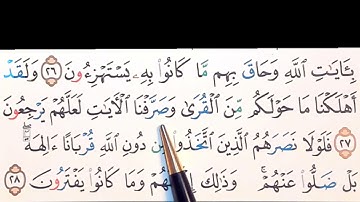 بِـَٔايَـٰتِ ٱللَّهِ وَحَاقَ بِهِم مَّا كَانُوا۟ بِهِۦ يَسْتَهْزِءُونَ ٢٦ وَلَقَدْ
أَهْلَكْنَا مَا حَوْلَكُم مِّنَ ٱلْقُرَىٰ وَصَرَّفْنَا ٱلْـَٔايَـٰتِ لَعَلَّهُمْ يَرْجِعُونَ
٢٧ فَلَوْلَا نَصَرَهُمُ ٱلَّذِينَ ٱتَّخَذُوا۟ مِن دُونِ ٱللَّهِ قُرْبَانًا ءَالِهَةًۢ
بَلْ ضَلُّوا۟ عَنْهُمْ ۚ وَذَٰلِكَ وَمَا كَانُوا۟ يَفْتَرُونَ ٢٨